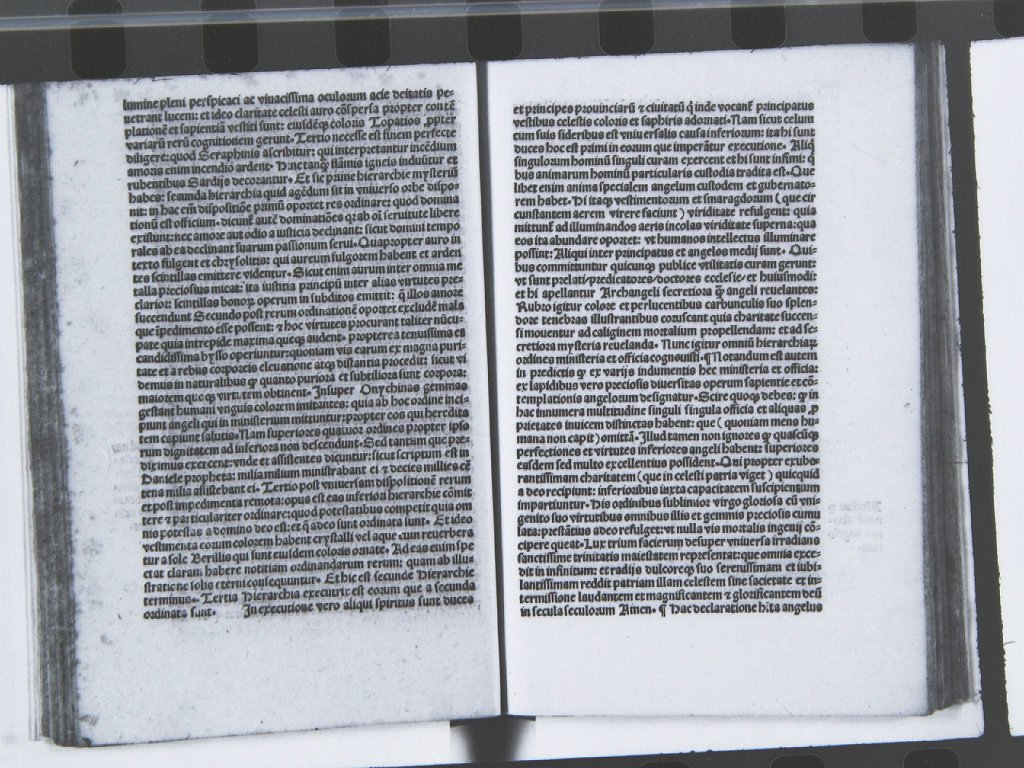 lumine pleni perspicaci ac viuacissima oculorum acie deitatis pe-
netrant lucem: et ideo claritate celesti auro cõspersa propter contẽ
plationẽ et sapientiã vestiti sunt: eiusdẽqꝫ coloris Topatios ꝓpter
variarũ rerũ cognitionem gerunt. Tertio necesse est finem perfecte
diligere: quod Seraphinis ascribitur: qui interpretantur incẽdium
amoris enim incendio ardent. Hinc tanꝙ̃ flãmis igneis induũtur et
rubentibus Sardijs decorantur. Et sic prime hierarchie mysteriũ
habes: secunda hierarchia quid agẽdum sit in vniuerso orbe dispo-
nit: in hac em̃ dispositiõe primũ oportet res ordinare: quod domina
tionũ est officium. dicunt̃ autẽ dominatiões qꝛ ab oĩ seruitute libere
existunt: nec amore aut odio a iusticia declinant: sicut domini tempo
rales ab ea declinant suarum passionum serui. Quapropter auro in
texto fulgent et chrysolitis: qui aureum fulgorem habent et arden
tes scintillas emittere videntur. Sicut enim aurum inter omnia me
talla preciosius micat: ita iustitia principũ inter alias virtutes pre-
clarior: scintillas bonoꝝ operum in subditos emittit: ꝙ̃ illos amore
succendunt Secundo post rerum ordinationẽ oportet excludẽ mala
que ĩpedimento esse possent: ⁊ hoc virtutes procurant taliter nũcu-
pate quia intrepide maxima queqꝫ audent. propterea tenuissima et
candidissima bysso operiuntur: quoniam vis earum ex magna puri-
tate et a rebus corporeis eleuatione atqꝫ distantia procedit: sicut vi
demus in naturalibus ꝙ quanto puriora et subtiliora sunt corpora:
maiorem quoqꝫ virtutem obtinent. Insuper Onychinas gemmas
gestant humani vnguis colorem imitantes: quia ab hoc ordine inci-
piunt angeli qui in ministerium mittuntur: propter eos qui heredita
tem capiunt salutis. Nam superiores quatuor ordines propter ipso
rum dignitatem ad inferiora non descendunt. Sed tantum que pre-
diximus exercent: vnde et assistentes dicuntur: sicut scriptum est in
Daniele propheta: millia milium ministrabant ei ⁊ decies millies cẽ
tena milia assistebant ei. Tertio post vniuersam dispositionẽ rerum
et post impedimenta remota: opus est eas inferiori hierarchie cõmit
tere ⁊ particulariter ordinare: quod potestatibus competit quia om
nis potestas a domino deo est: et q̃ a deo sunt ordinata sunt. Et ideo
vestimenta eorum colorem habent crystalli vel aque cum reuerbera
tur a sole Berillis qui sunt eiusdem coloris ornate. Ad eas enim spe
ctat claram habere notitiam ordinandarum rerum: quam ab illu-
stratione solis eterni consequuntur. Et hic est secunde Hierarchie
terminus. Tertia Hierarchia executrix est eorum que a secunda
ordinata sunt. In executione vero aliqui spiritus sunt duces
et principes prouinciarũ ⁊ ciuitatũ q̃ inde vocant̃ principatus
vestibus celestis coloris et saphiris adornati. Nam sicut celum
cum suis sideribus est vniuersalis causa inferiorum: ita hi sunt
duces hoc est primi in eorum que imperãtur executione. Aliq̃
singulorum hominũ singuli curam exercent et hi sunt infimi: q̃
bus animarum hominũ particularis custodia tradita est. Que
libet enim anima specialem angelum custodem et gubernato-
rem habet. Hi itaqꝫ vestimentorum et smaragdorum (que cir
cunstantem aerem virere faciunt) viriditate refulgent: quia
mittunt̃ ad illuminandos aeris incolas viriditate superna: qua
eos ita abundare oportet: vt humanos intellectus illuminare
possint: Aliqui inter principatus et angelos medij sunt. Qui-
bus committuntur quicunqꝫ publice vtilitatis curam gerunt:
vt sunt prelati/predicatores/doctores ecclesie/et huiusmodi:
et hi apellantur Archangeli secretiora ꝙ̃ angeli reuelantes:
Rubro igitur colore et perlucentibus carbunculis suo splen-
dore tenebras illustrantibus coruscant quia charitate succen-
si mouentur ad caliginem mortalium propellendam: et ad se-
cretiora mysteria reuelanda. Nunc igitur omniũ hierarchiaꝝ
ordines ministeria et officia cognouisti. ¶ Notandum est autem
in predictis ꝙ ex varijs indumentis hec ministeria et officia:
ex lapidibus vero preciosis diuersitas operum sapientie et cõ-
templationis angelorum designatur. Scire quoqꝫ debes: ꝙ in
hac innumera multitudine singuli singula officia et aliquas ꝓ
prietates inuicem distinctas habent: que (quoniam mens hu-
mana non capit) omittã. Illud tamen non ignores ꝙ quascũqꝫ
perfectiones et virtutes inferiores angeli habent: superiores
easdem sed multo excellentius possident. Qui propter exube-
rantissimam charitatem (que in celesti patria viget) quicquid
a deo recipiunt: inferioribus iuxta capacitatem suscipientium
impartiuntur. His ordinibus sublimior virgo gloriosa cũ vni-
genito suo virtutibus omnibus illis et gemmis preciosis cumu
lata: prestãtius adeo refulget: vt nulla vis mortalis ingenij cõ-
cipere queat. Lux trium facierum desuper vniuersa irradians
sanctissime trinitatis maiestatem representat: que omnia exce-
dit in infinitum: et radijs dulcoreqꝫ suo serenissimam et iubi-
lantissimam reddit patriam illam celestem sine sacietate et in-
termissione laudantem et magnificantem ⁊ glorificantem deũ
in secula seculorum Amen. ¶ Hac declaratione hita angelus